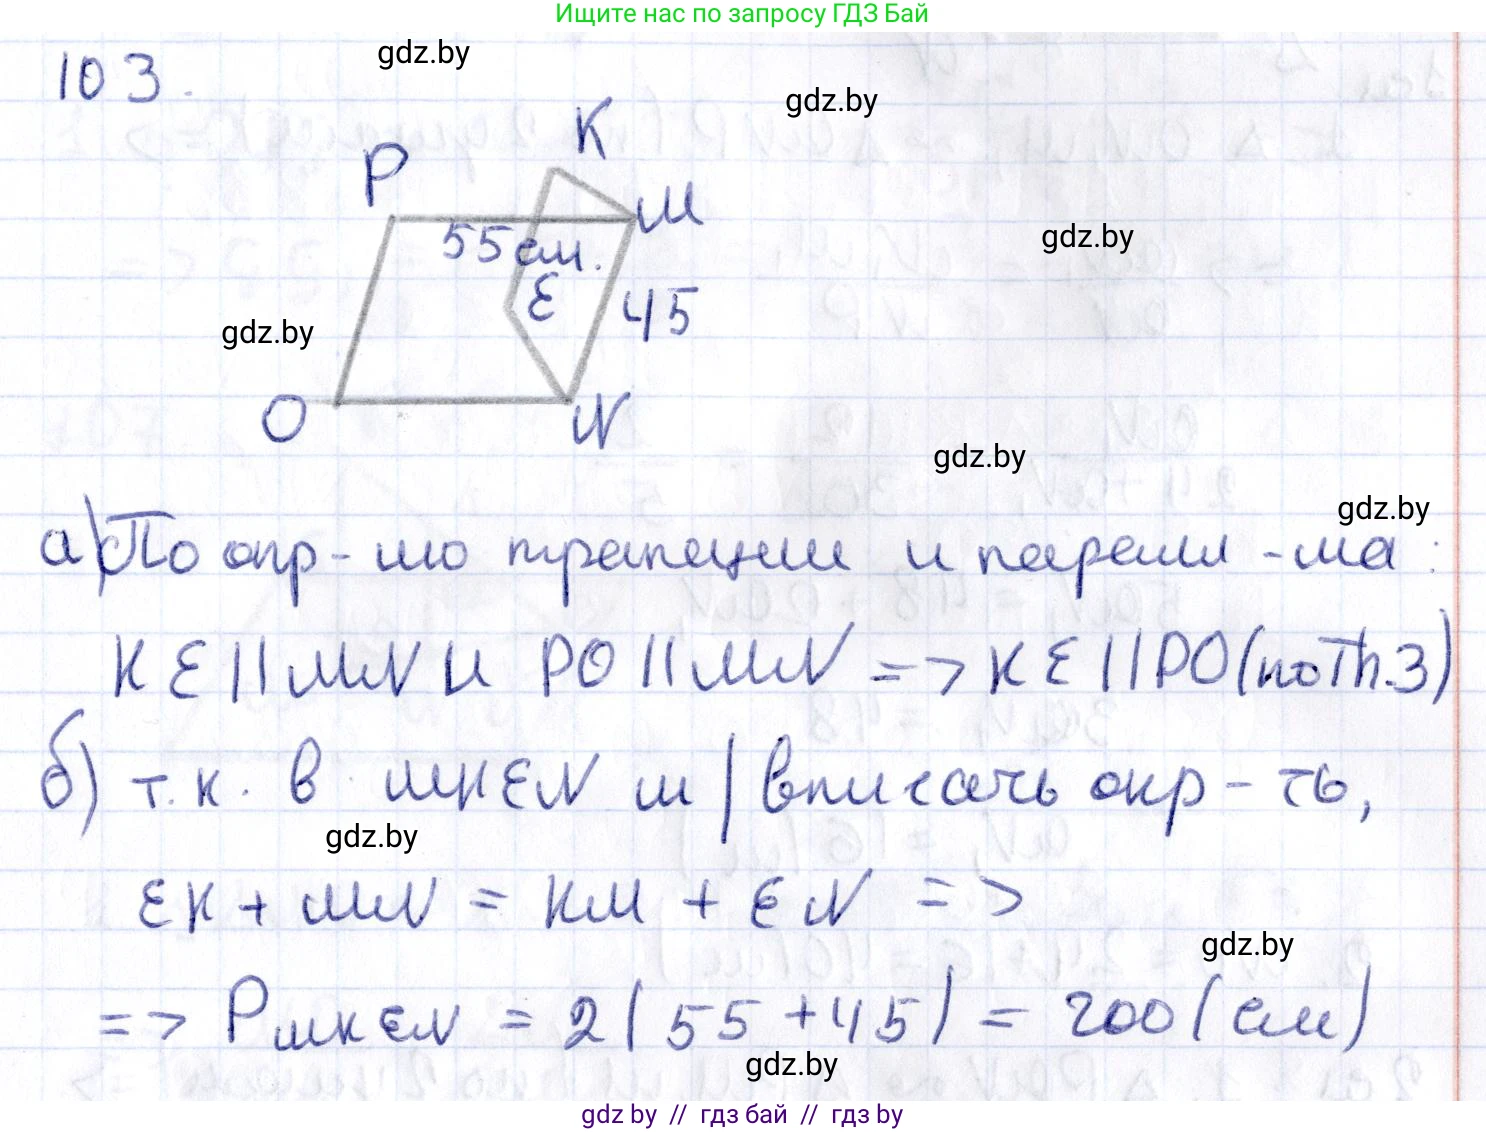 Ищите нас по запросу ГДЗ Бай
103.
gdz.by
gdz.by
K
P
M
55 см.
gdz.by
E
45
gdz.by
O
N
gdz.by
gdz.by
а) По опр-ию трапеции и паралл-ма:
KE || MN и PO || MN => KE || PO (по Th.3)
б) т.к. в MKEN м/вписать окр-ть,
gdz.by
EK + MN = KM + EN =>
gdz.by
=> P MKEN = 2(55 + 45) = 200 (см)
gdz.by
gdz by // гдз бай // гдз by